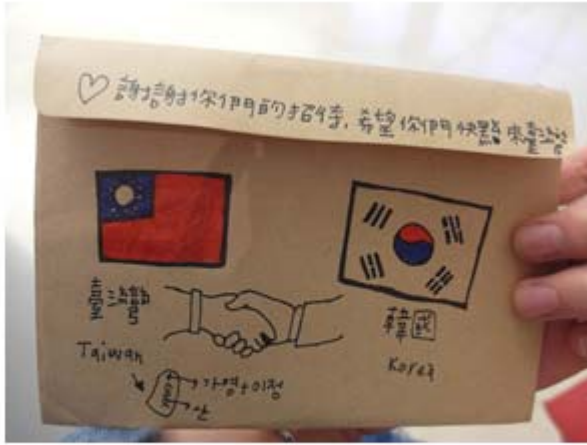 ♡ 謝謝你們的招待, 希望你們快點來臺灣
臺灣
韓國
Taiwan
Korea
가영+이정
산